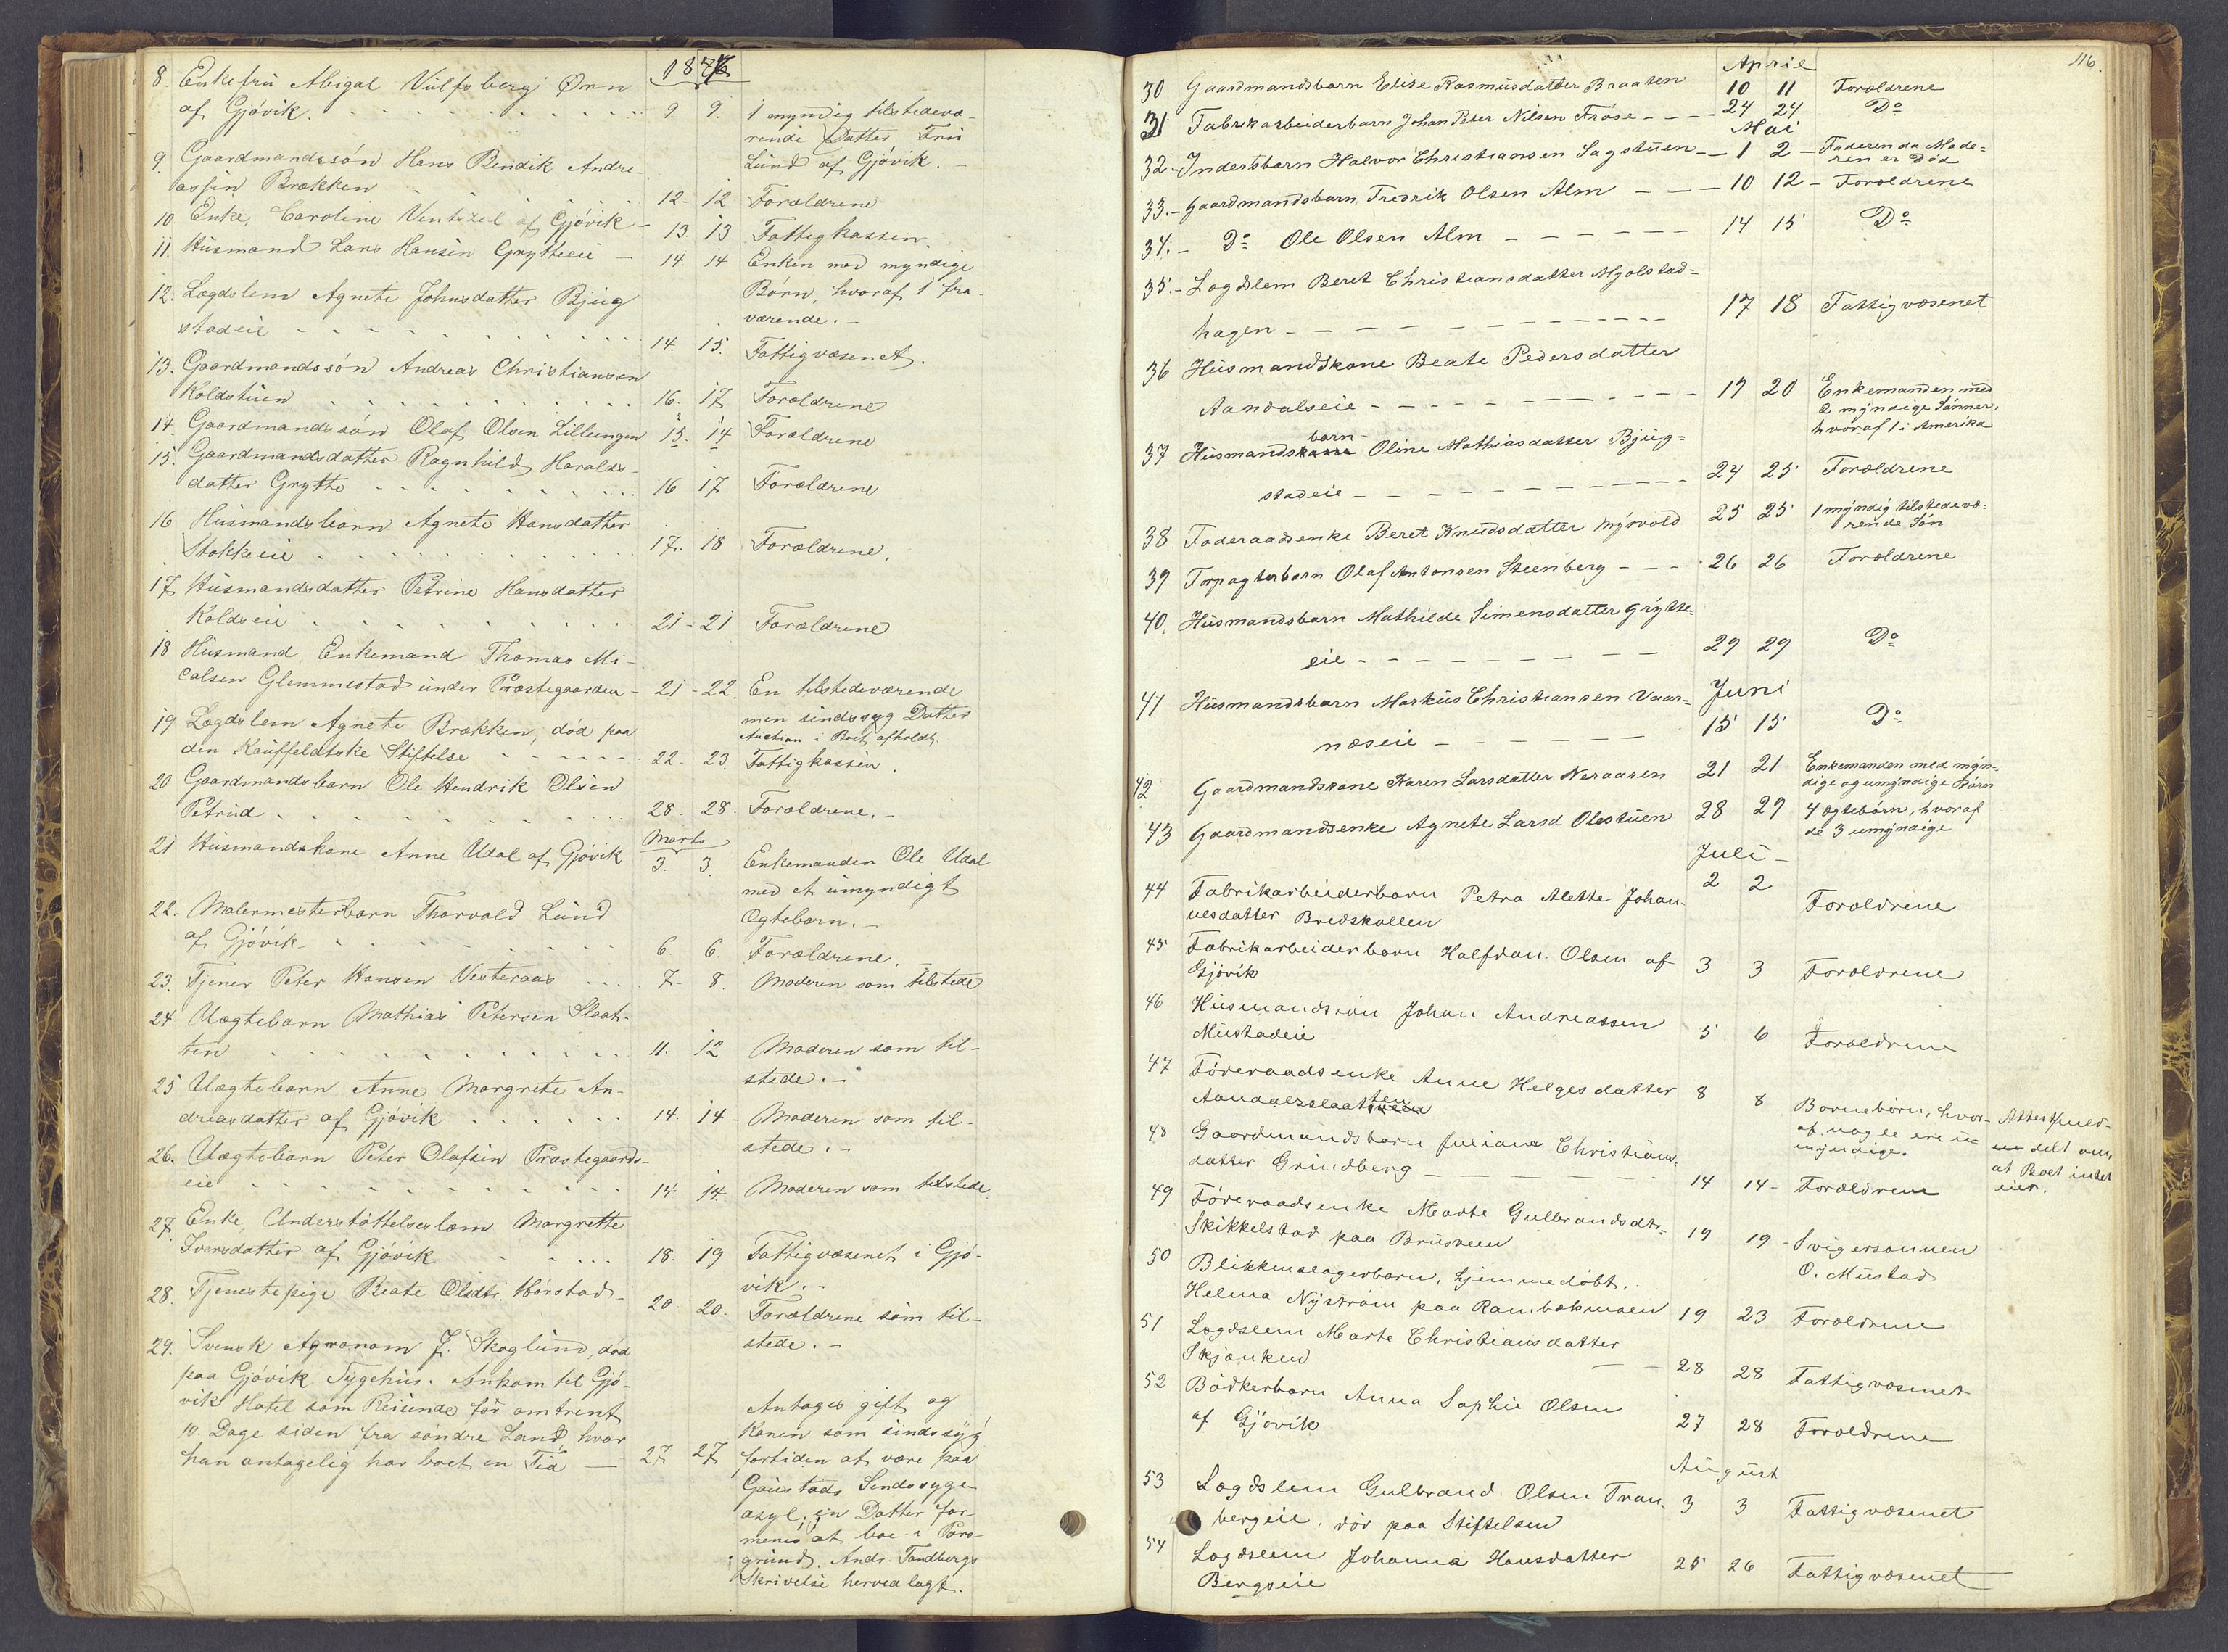 1876
8. Enkefru Abigal Vulfsberg Ørn
af Gjövik. 9 9. 1 myndig tilstedevæ-
rende Datter Fru
Lund af Gjövik. -
9. Gaardmandssön Hans Bendik Andre-
assen Brækken 12. 12 Forældrene
10 Enke, Caroline Ventzel af Gjövik - 13. 13 Fattigkassen.
11. Husmand Lars Hansen Grytteeie - 14 14 Enken med myndige
Börn, hvoraf 1 fra-
værende. -
12. Lægdslem Agnete Johnsdatter Bjug
stadeie 14. 15. Fattigvæsenet.
13. Gaardmandssön Andreas Christiansen
Koldstuen 16. 17 Forældrene
14. Gaardmandssön Olaf Olsen Lillemgen 13. 14 Forældrene
15. Gaardmandsdatter Ragnhild Haralds-
datter Grytte 16 17 Forældrene
16 Husmandsbarn Agnete Hansdatter
Stokkeeie 17. 18 Forældrene,
17 Husmandsdatter Petrine Hansdatter
Koldseie 21 - 21 Forældrene
18 Husmand, Enkemand Thomas Mi-
calsen Glemmestad under Præstegaarden - 21 - 22. En tilstedeværende
men sindssyg Datter
Auction i Boet afholdt.
19 Lægdslem Agnete Brækken, död paa
den Kauffeldtske Stiftelse 22. 23. Fattigkassen.
20 Gaardmandsbarn Ole Hendrik Olsen
Petrud 28. 28. Forældrene. -
Marts
21 Husmandskone Anne Udal af Gjövik 3. 3. Enkemanden Ole Udal
med et umyndigt
Ægtebarn. -
22. Malermesterbarn Thorvald Lund
af Gjövik 6. 6. Forældrene.
23. Tjener Peter Hansen Vesteraas 7. 8. Moderen som tilstede
24 Uægtebarn Mathias Petersen Slaat-
ten 11. 12 Moderen som til-
stede. -
25 Uægtebarn Anne Margrete An-
dreasdatter af Gjövik 14. 14 - Moderen som til-
stede. -
26. Uægtebarn Peter Olafsen Præstegaards-
eie 14 14 Moderen som tilstede
27. Enke, Understöttelseslem Margrette
Iversdatter af Gjövik 18. 19 Fattigvæsenet i Gjö-
vik. -
28. Tjenestepige Beate Olsdtr. Hörstad - 20 20. Forældrene som til-
stede. -
29. Svensk Agronom J. Skoglund, död
paa Gjövik Sygehus. Ankom til Gjö-
viks Hotel som Reisende for omtrent
10. Dage siden fra söndre Land, hvor
han antagelig har boet en Tid - 27. 27 Antages gift og
Konen som sindssyg
fortiden at være paa
Gaustads Sindssyge-
asyl; en Datter for-
menes at boe i Pors-
grund. Andr. Tandbergs
Skrivelse herved lagt.
116.
April
30 Gaardmandsbarn Elise Rasmusdatter Braaten 10 11 Forældrene
31 Fabrikarbeiderbarn Johan Peter Nilsen Fröse - - - 24 24 Do
Mai
32 - Inderstbarn Halvor Christiansen Sagstuen - - 1 2 - Faderen da Mode-
ren er Död
33. - Gaardmandsbarn Fredrik Olsen Alm - - - 10 12 - Forældrene
34. - Do Ole Olsen Alm - - - 14 15 Do
35. - Lægdslem Beret Christiansdatter Mjølstad-
hagen - - - 17 18 Fattigvæsenet
36 Husmandskone Beate Pedersdatter
Aandalseie - - - 17 20 Enkemanden med
2 myndige Sönner,
hvoraf 1 i Amerika
37 Husmandskone barn Oline Mathiasdatter Bjug-
stadeie - - - 24 25 Forældrene
38 Föderaadsenke Beret Knudsdatter Mysvold 25 25 1 myndig tilstedevæ-
rende Sön
39 Forpagterbarn Olaf Antonsen Steenberg - - - 26 26 Forældrene
40. Husmandsbarn Mathilde Simensdatter Grytte-
eie - - - 29 29 Do
Juni
41 Husmandsbarn Markus Christiansen Vaar-
næseie - - - 15 15 Do
42 Gaardmandskone Karen Larsdatter Neraasen 21 21 Enkemanden med myn-
dige og umyndige Börn
43 Gaardmandsenke Agnete Larsd Olestuen 28 29 4 Ægtebörn, hvoraf
de 3 umyndige
Juli -
44 Fabrikarbeiderbarn Petra Alette Johan-
nesdatter Bredskallen 2 2 Forældrene
45 Fabrikarbeiderbarn Halfdan Olsen af
Gjövik 3 3 Forældrene
46 Husmandssön Johan Andreassen
Mustadeie 5 6 Forældrene
47 Föderaadsenke Anne Helgesdatter
Aandalsslaatten 8 8 Bornebörn, hvor-
af nogle ere u-
myndige.
Attest
delt om,
at Boet intet
eier.
48 Gaardmandsbarn Juliane Christians-
datter Grindberg - - - 14 14 - Forældrene
49 Föderaadsenke Marte Gulbrandsdtr.
Skikkelstad paa Brusveen 19 19 - Svigersønnen
O. Mustad
50 Blikkenslagerbarn, hjemmedöbt,
Helma Nyström paa Rambækmoen 19 23 Forældrene
51 Lægdslem Marte Christiansdatter
Skjanken - - 28 28 Fattigvæsenet
52 Bödkerbarn Anna Sophie Olsen
af Gjövik 27 28 Forældrene
August
53 Lægdslem Gulbrand Olsen Tran-
bergeie, död paa Stiftelsen 3 3 Fattigvæsenet
54 Lægdslem Johanna Hansdatter
Bergseie 25 26 Fattigvæsenet